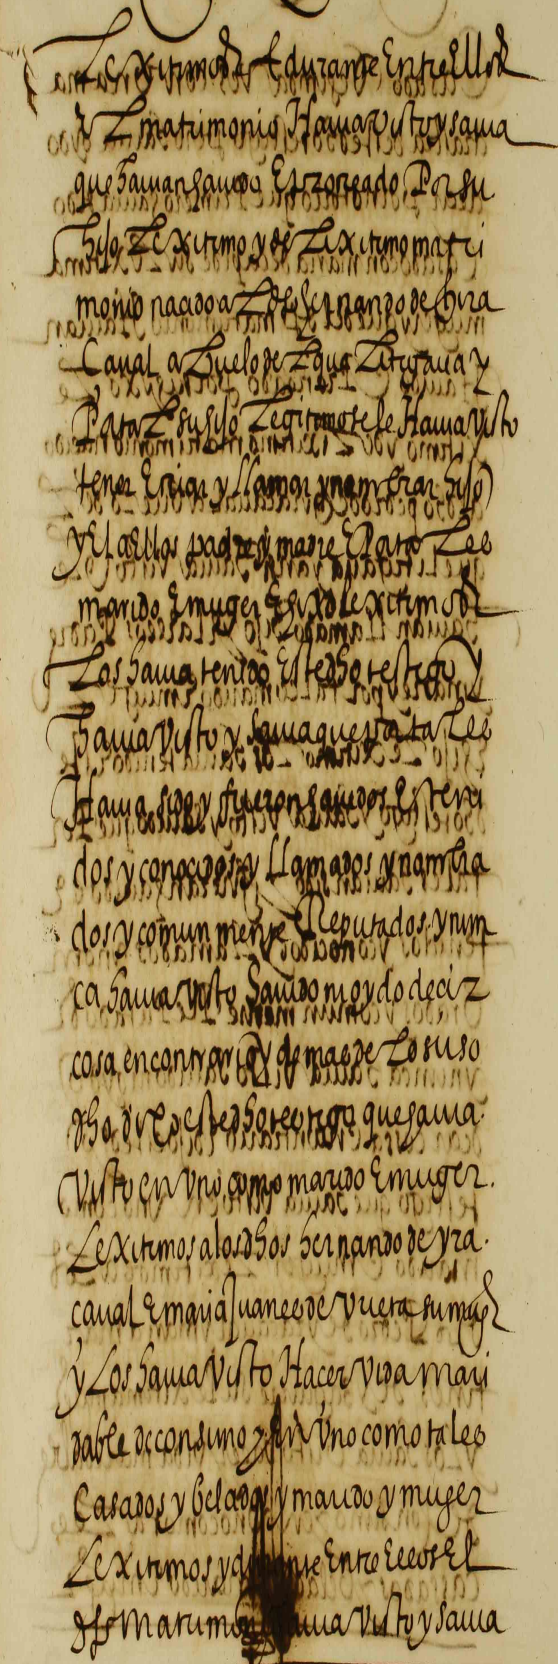 Lexitimos y durante Entre ellos
El matrimonio Hauia visto y sauia
que hauian hauido E procreado Por su
hijo Lexitimo y de Lexitimo matri
monio nacido al dho hernando de hira
Caual abuelo de que Litigaua y
Para su hijo Legitimo se le Hauia visto
tener Criar y llamar y nombrar hijo
y El a Ellos padre y madre E Para tales
marido E muger E hixo lexitimo del
Los hauia tenido Este dho testigo y
hauia visto y sauia que Para tales
Hauia sido y fueron hauidos E teni
dos y conocidos y llamados y nombra
dos y comun mente Reputados y nun
ca hauia visto sauido ni oydo decir
cosa en contrario y demas de Lo suso
dho dixo este dho testigo que hauia
visto en Vno como marido E muger
Lexitimos a los dhos hernando de yra
caual E maria Juanes de Vueta su muger
y Los hauia Visto Hacer Vida mari
dable de consuno y en Vno como tales
Casados y belados y marido y muger
Lexitimos y durante Entre Ellos El
dho matrimonio hauia Visto y sauia